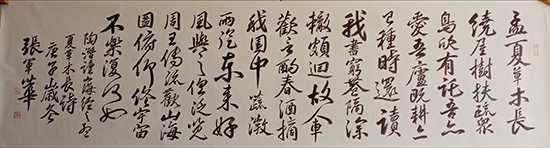 孟夏草木長
繞屋樹扶疏眾
鳥欣有托吾亦
愛吾廬既耕亦
已種時還讀
我書窮巷隔深
轍頗迴故人車
歡言酌春酒摘
我園中蔬微
雨從東來好
風與之俱泛覽
周王傳流觀山海
圖俯仰終宇宙
不樂復何如
陶潛讀山海經孟
夏草木長詩
庚子歲冬
張軍華